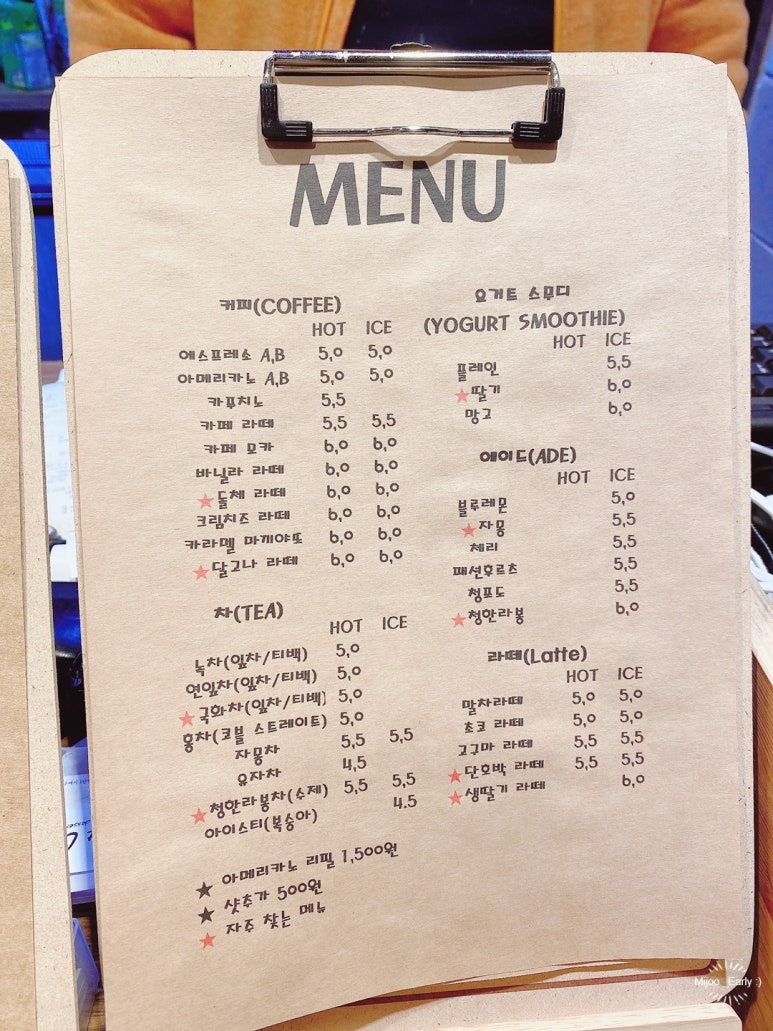 MENU
커피(COFFEE)
HOT ICE
에스프레소 A,B 5,0 5,0
아메리카노 A,B 5,0 5,0
카푸치노 5,5
카페 라떼 5,5 5,5
카페 모카 6,0 6,0
바닐라 라떼 6,0 6,0
★돌체 라떼 6,0 6,0
크림치즈 라떼 6,0 6,0
카라멜 마끼야또 6,0 6,0
★달고나 라떼 6,0 6,0
차(TEA)
HOT ICE
녹차(잎차/티백) 5,0
연잎차(잎차/티백) 5,0
★국화차(잎차/티백) 5,0
홍차(코블 스트레이트) 5,0
자몽차 5,5 5,5
유자차 4,5
★청한라봉차(수제) 5,5 5,5
아이스티(복숭아) 4.5
★ 아메리카노 리필 1,500원
★ 샷추가 500원
★ 자주 찾는 메뉴
요거트 스무디
(YOGURT SMOOTHIE)
HOT ICE
플레인 5,5
★딸기 6,0
망고 6,0
에이드(ADE)
HOT ICE
블루레몬 5,0
★자몽 5,5
체리 5,5
패션후르츠 5,5
청포도 5,5
★청한라봉 6,0
라떼(Latte)
HOT ICE
말차라떼 5,0 5,0
초코 라떼 5,0 5,0
고구마 라떼 5,5 5,5
★단호박 라떼 5,5 5,5
★생딸기 라떼 6,0
Mijoo_Early :)